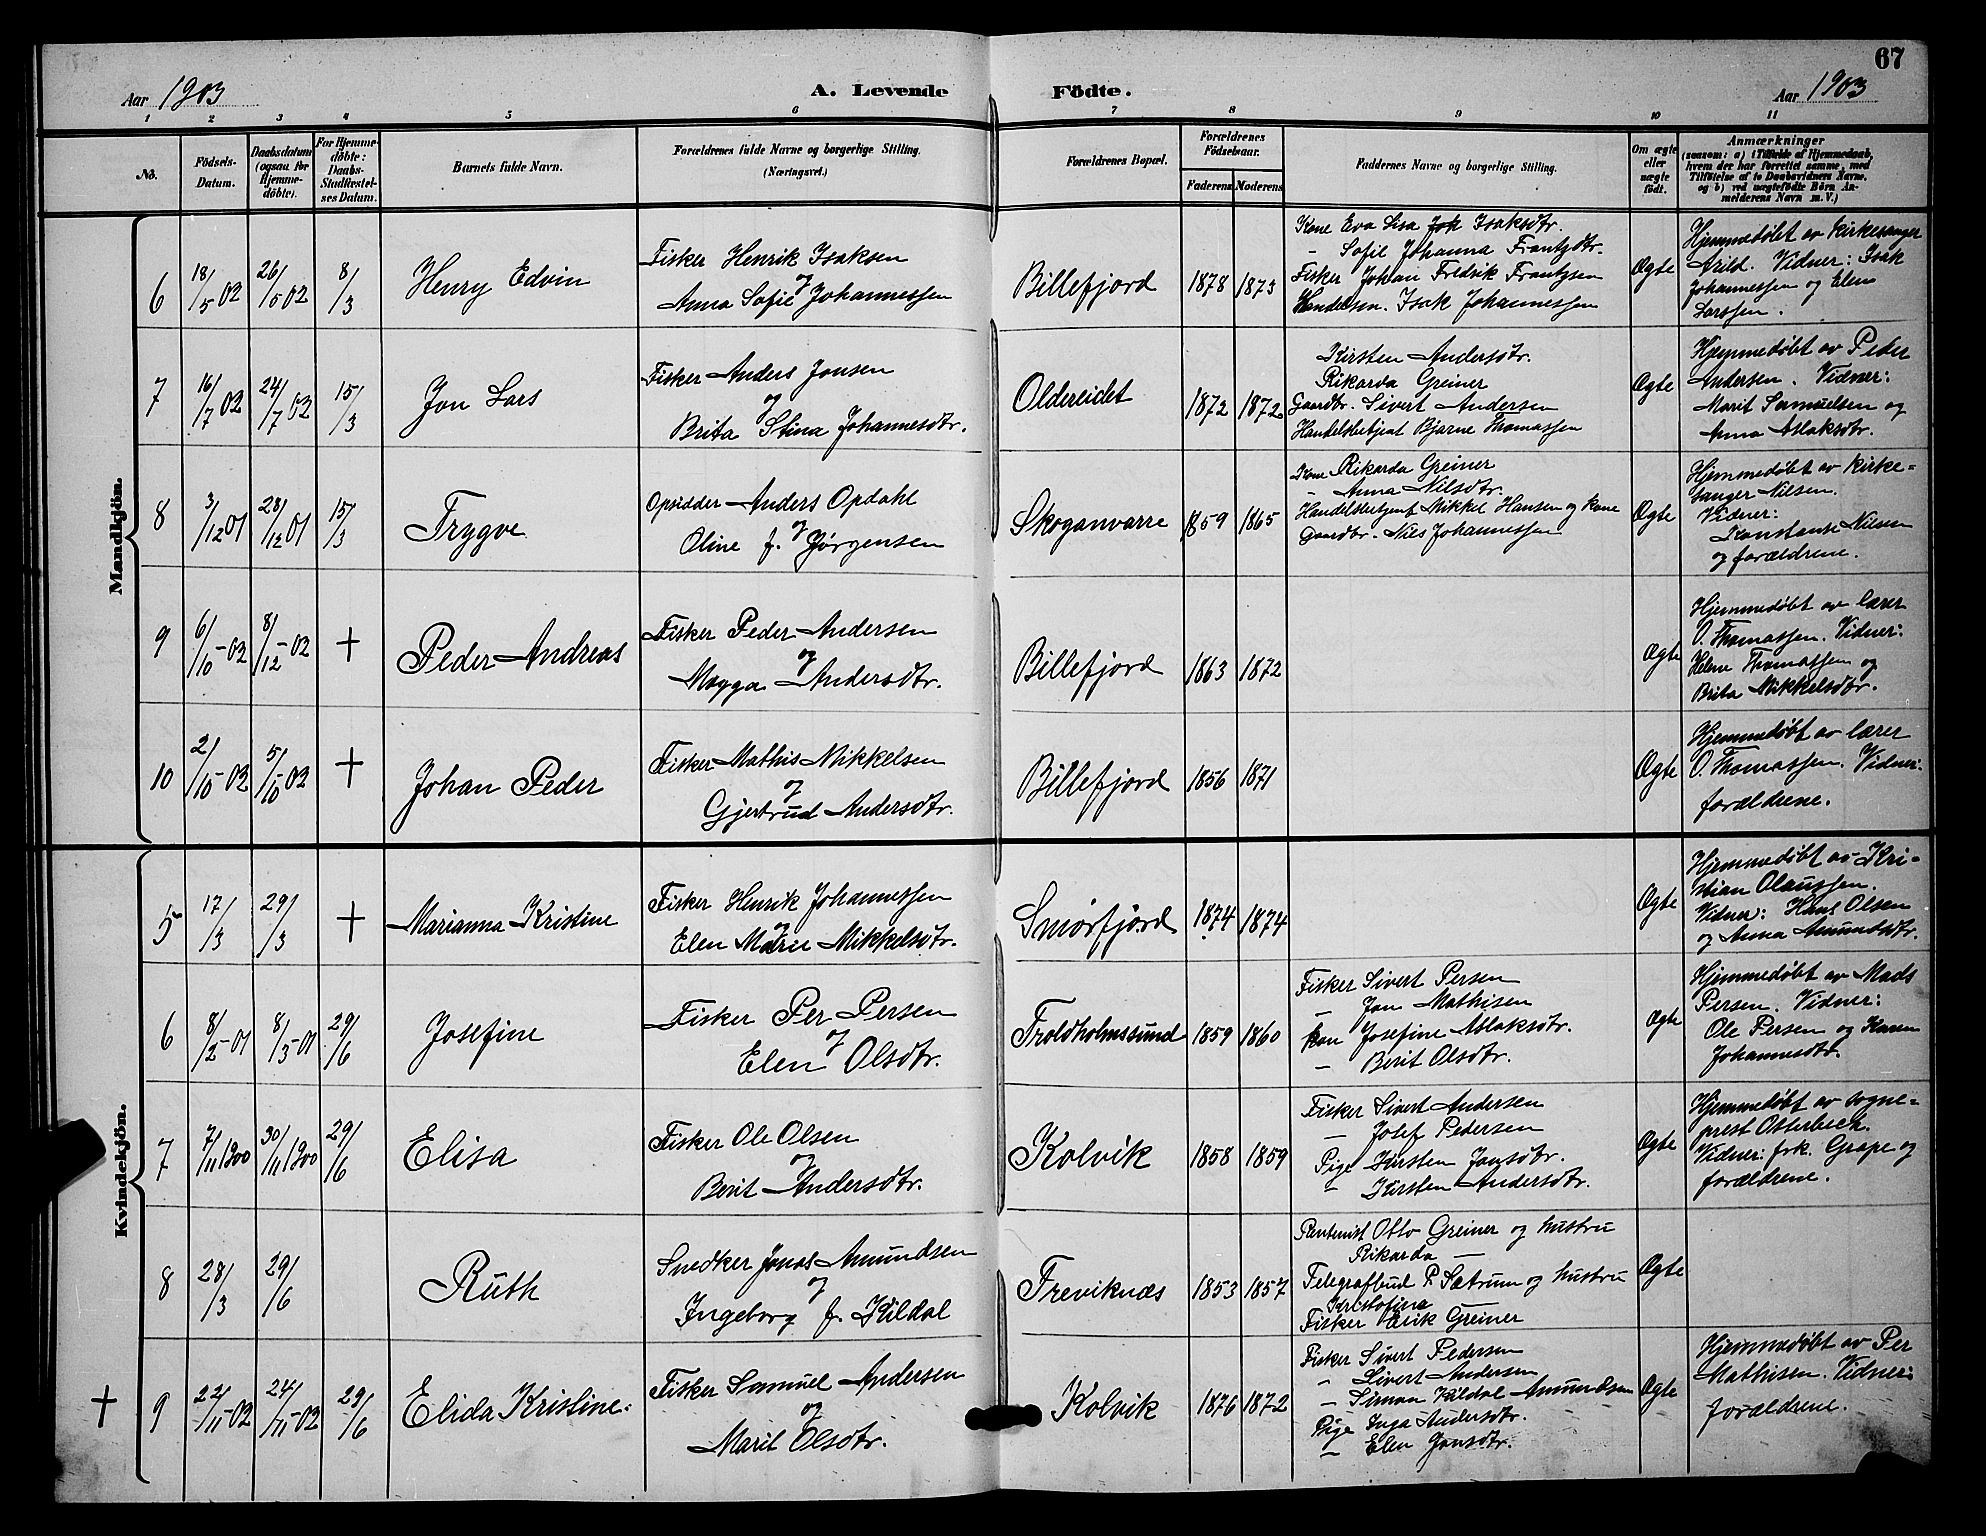 67
Aar 1903
A. Levende
Födte.
Aar 1903
1 2 3 4 5 6 7 8 9 10 11
No.
Födsels-
Datum.
Daabsdatum
(ogsaa for
Hjemme-
döbte).
For Hjemme-
döbte:
Daabs-
Stadfæstel-
ses Datum.
Barnets fulde Navn.
Forældrenes fulde Navne og borgerlige Stilling.
(Næringsvei.)
Forældrenes Bopæl.
Forældrenes
Födselsaar.
Faderens
Moderens
Faddernes Navne og borgerlige Stilling.
Om ægte
eller
uægte
födt.
Anmærkninger
(saasom: a) i Tilfælde af Hjemmedaab,
hvem der har forrettet samme, med
Tilföielse af to Daabsvidners Navne,
og b) ved uægtefödte Börn An-
melderens Navn m. V.)
Mandkjön.
6
18/5 02
26/5 02
8/3
Henry Edvin
Fisker Henrik Isaksen
og
Anna Sofie Johannessen
Billefjord
1878
1873
Kone Eva Lisa Joh Isaksdtr.
— Sofie Johanna Frantzdtr.
Fisker Johan Fredrik Frantzsen
Handelsm. Isak Johannessen
Ægte
Hjemmedøbt av kirkesanger
Arild. Vidner: Isak
Johannessen og Elen
Larssen.
7
16/7 02
24/7 02
15/3
Jon Lars
Fisker Anders Jonsen
og
Brita Stina Johannesdtr.
Oldereidet
1872
1872
Kirsten Andersdtr.
Rikarda Greiner
Gaardbr. Sivert Andersen
Handelsbetjent Bjarne Thomassen
Ægte
Hjemmedøbt av Peder
Andersen. Vidner:
Marit Samuelsen og
Anna Aslaksdtr.
8
3/12 01
28/12 01
15/3
Trygve
Opsidder Anders Opdahl
og
Oline f. Jørgensen
Skoganvarre
1859
1865
Kone Rikarda Greiner
— Anna Nilsdtr.
Handelsbetjent Mikkel Hansen og kone
Gaardbr. Nils Johannessen
Ægte
Hjemmedøbt av kirke-
sanger Nilsen.
Vidner:
Konstanse Nilsen
og forældrene.
9
6/10-02
8/12-02
+
Peder Andreas
Fisker Peder Andersen
og
Magga Andersdtr.
Billefjord
1863
1872
Ægte
Hjemmedøbt av lærer
O. Thomassen. Vidner:
Helene Thomassen og
Brita Mikkelsdtr.
10
2/10-02
5/10-02
+
Johan Peder
Fisker Mathis Mikkelsen
og
Gjertrud Andersdtr.
Billefjord
1856
1871
Ægte
Hjemmedøbt av lærer
O. Thomassen. Vidner:
forældrene.
Kvindekjön.
5
17/3
29/3
+
Marianna Kristine
Fisker Henrik Johannessen
og
Elen Marie Mikkelsdtr.
Smørfjord
1874
1874
Ægte
Hjemmedøbt av Kri-
stian Olaussen.
Vidner: Hans Olsen
og Anna Amundsdtr.
6
8/2-01
8/3-01
29/6
Josefine
Fisker Per Persen
og
Elen Olsdtr.
Troldholmssund
1859
1860
Fisker Sivert Persen
— Jon Mathisen
Kon Josefine Aslaksdtr.
— Berit Olsdtr.
Ægte
Hjemmedøbt av Mads
Persen. Vidner:
Ole Persen og Karen
Johannesdtr.
7
7/11 1900
30/11 1900
29/6
Elisa
Fisker Ole Olsen
og
Berit Andersdtr.
Kolvik
1858
1859
Fisker Sivert Andersen
— Josef Pedersen
Pige Kirsten Jonsdtr.
— Kirsten Andersdtr.
Ægte
Hjemmedøbt av sogne-
prest Otterbech.
Vidner: frk. Grape og
forældrene.
8
28/3
29/6
Ruth
Snedker Jonas Amundsen
og
Ingeborg f. Kildal
Treviknæs
1853
1857
Otto Greiner og hustru
Rikarda —
Telegrafbud P. Sætrum og hustru
Kristofine
Fisker Erik Greiner
Ægte
+
9
22/11-02
24/11-02
29/6
Elida Kristine
Fisker Samuel Andersen
og
Marit Olsdtr.
Kolvik
1876
1872
Fisker Sivert Pedersen
— Sivert Andersen
— Simon Kildal Amundsen
Pige Inga Andersdtr.
— Elen Jonsdtr.
Ægte
Hjemmedøbt av Per
Mathisen. Vidner:
forældrene.